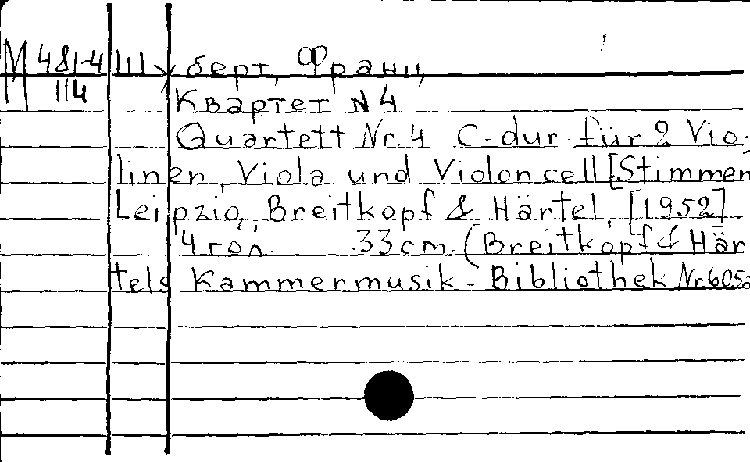 М 481-4 Шуберт, Франц,
114
Квартет N 4
Quartett Nr. 4 C-dur für 2 Vio-
linen, Viola und Violoncell [Stimmen
Leipzig, Breitkopf & Härtel, [1952]
4 гол. 33 cm. (Breitkopf & Här
tels Kammermusik-Bibliothek Nr.